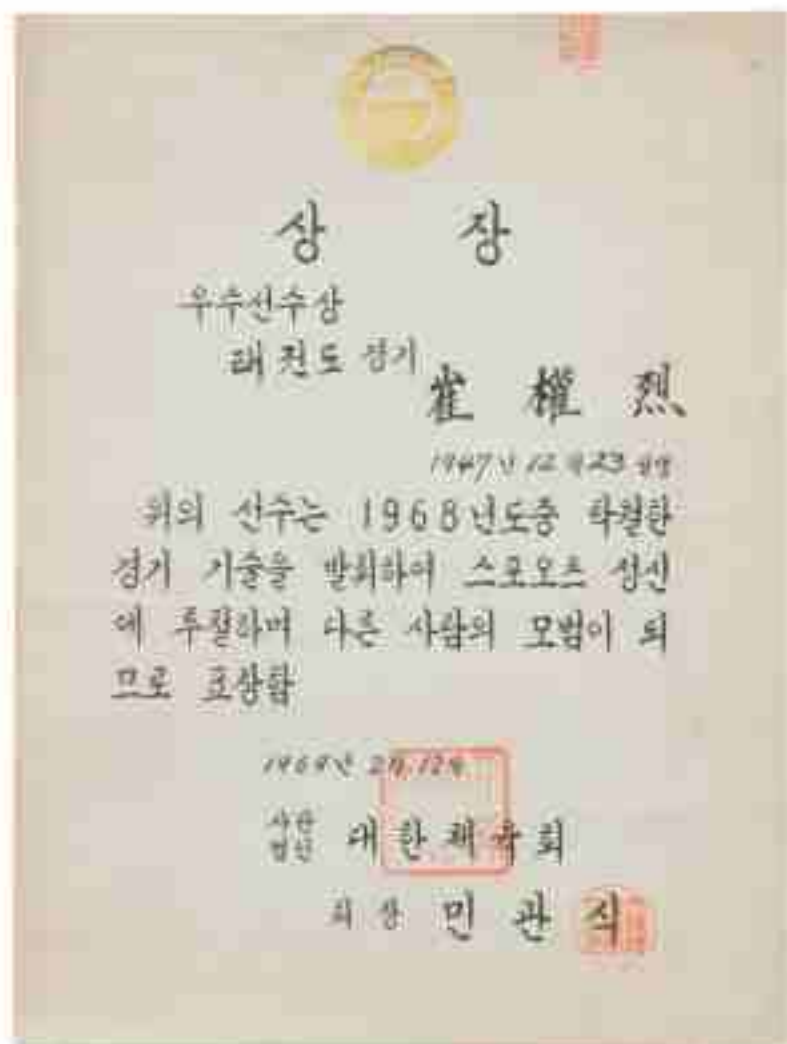 상 장
우수선수상
태권도 경기
崔 權 烈
1947년 12월 23일생
위의 선수는 1968년도중 탁월한
경기 기술을 발휘하여 스포오츠 정신
에 투철하며 다른 사람의 모범이 되
므로 표상함
1969년 2월 12일
사단
법인 대한체육회
회장 민관식